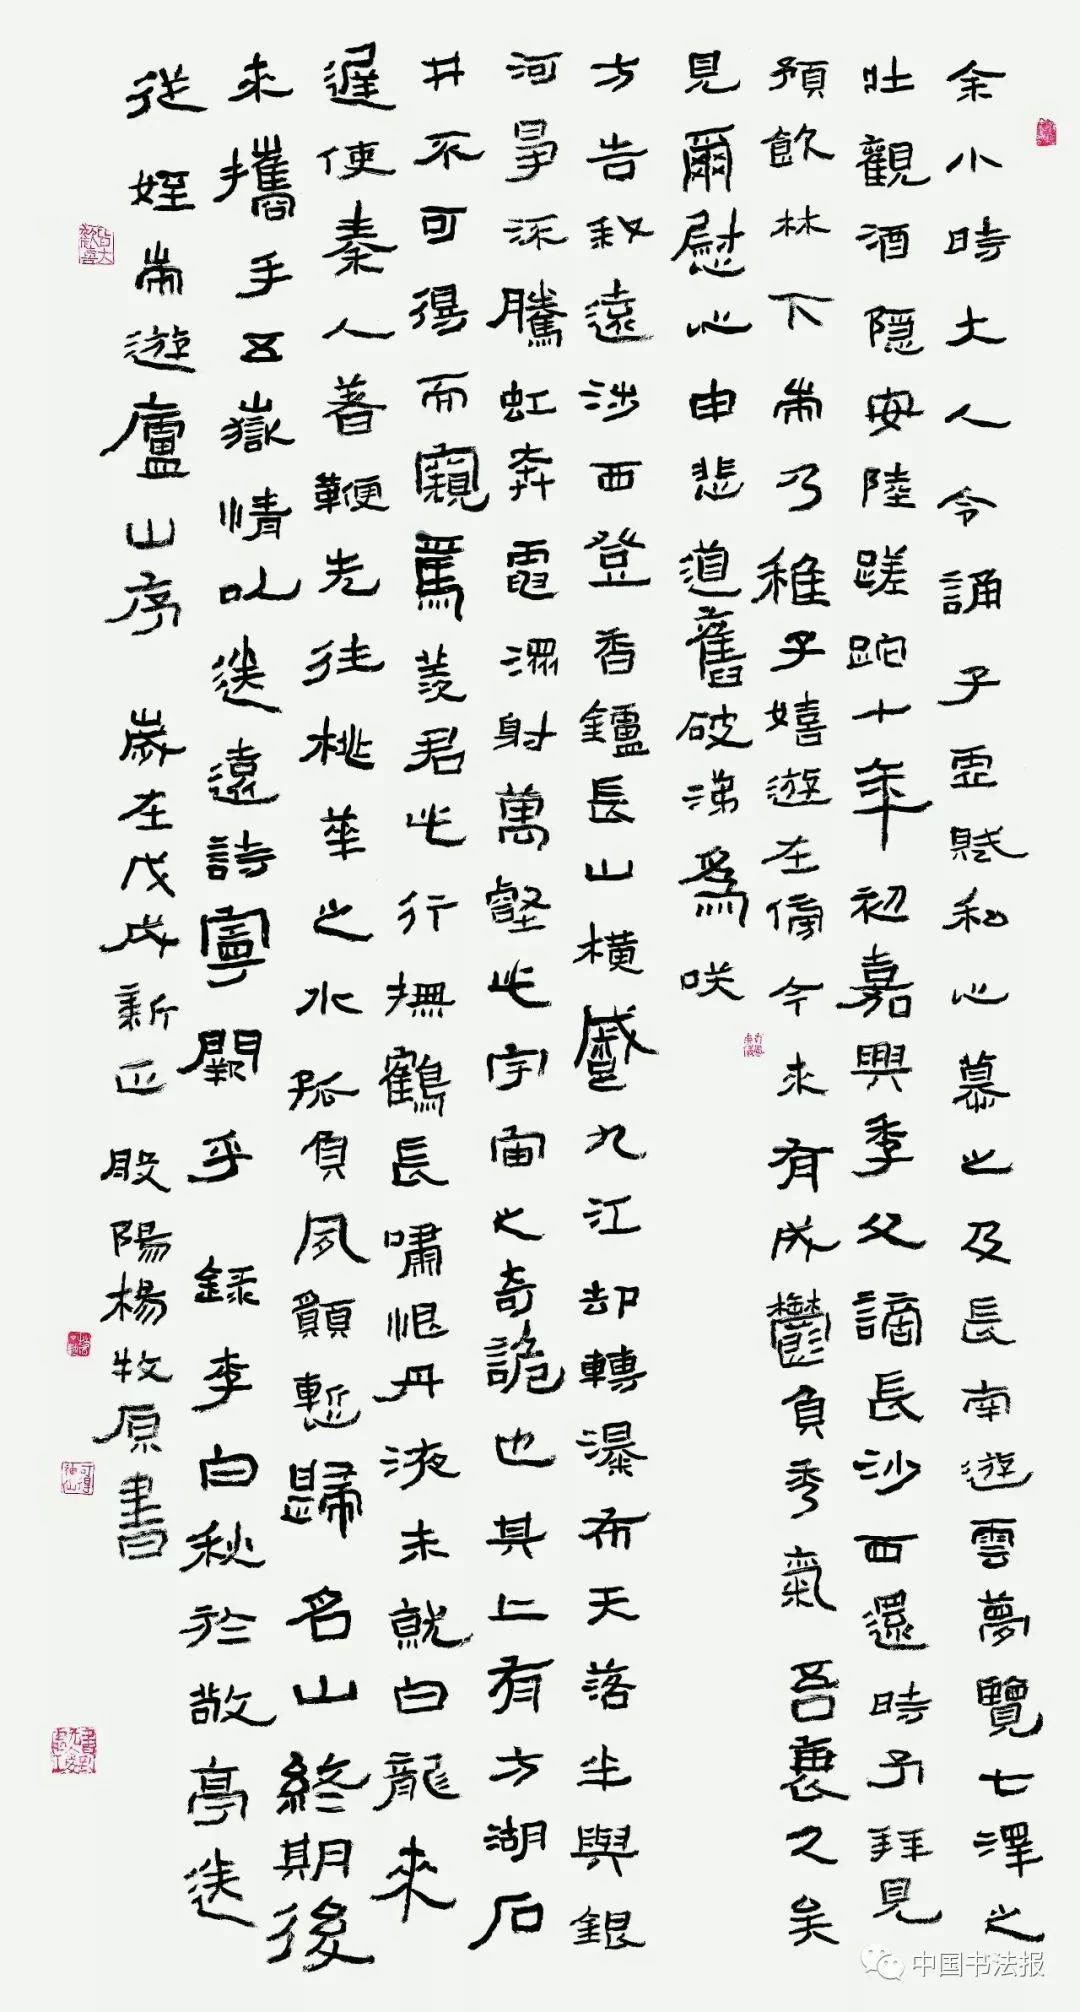 余小時大人令誦子虛賦私心慕之及長南遊雲夢覽七澤之
壯觀酒隱安陸蹉跎十年初嘉興季父謫長沙西還時予拜見
預飲林下耑乃稚子嬉遊在傍今來有成鬱負秀氣吾衰久矣
見爾慰心申悲道舊破涕爲咲
方告我遠涉西登香鑪長山橫蹙九江却轉瀑布天落半與銀
河爭流騰虹奔電潀射萬壑此宇宙之奇詭也其上有方湖石
井不可得而窺焉羨君此行撫鶴長嘯恨丹液未就白龍來
遲使秦人著鞭先往桃華之水孤負夙願慙歸名山終期後
來攜手五嶽情以送遠詩寧闕乎 錄李白秋於敬亭送
從姪耑遊廬山序 歲在戊戌新正 殷陽楊牧原書
皆大歡喜
中国书法报